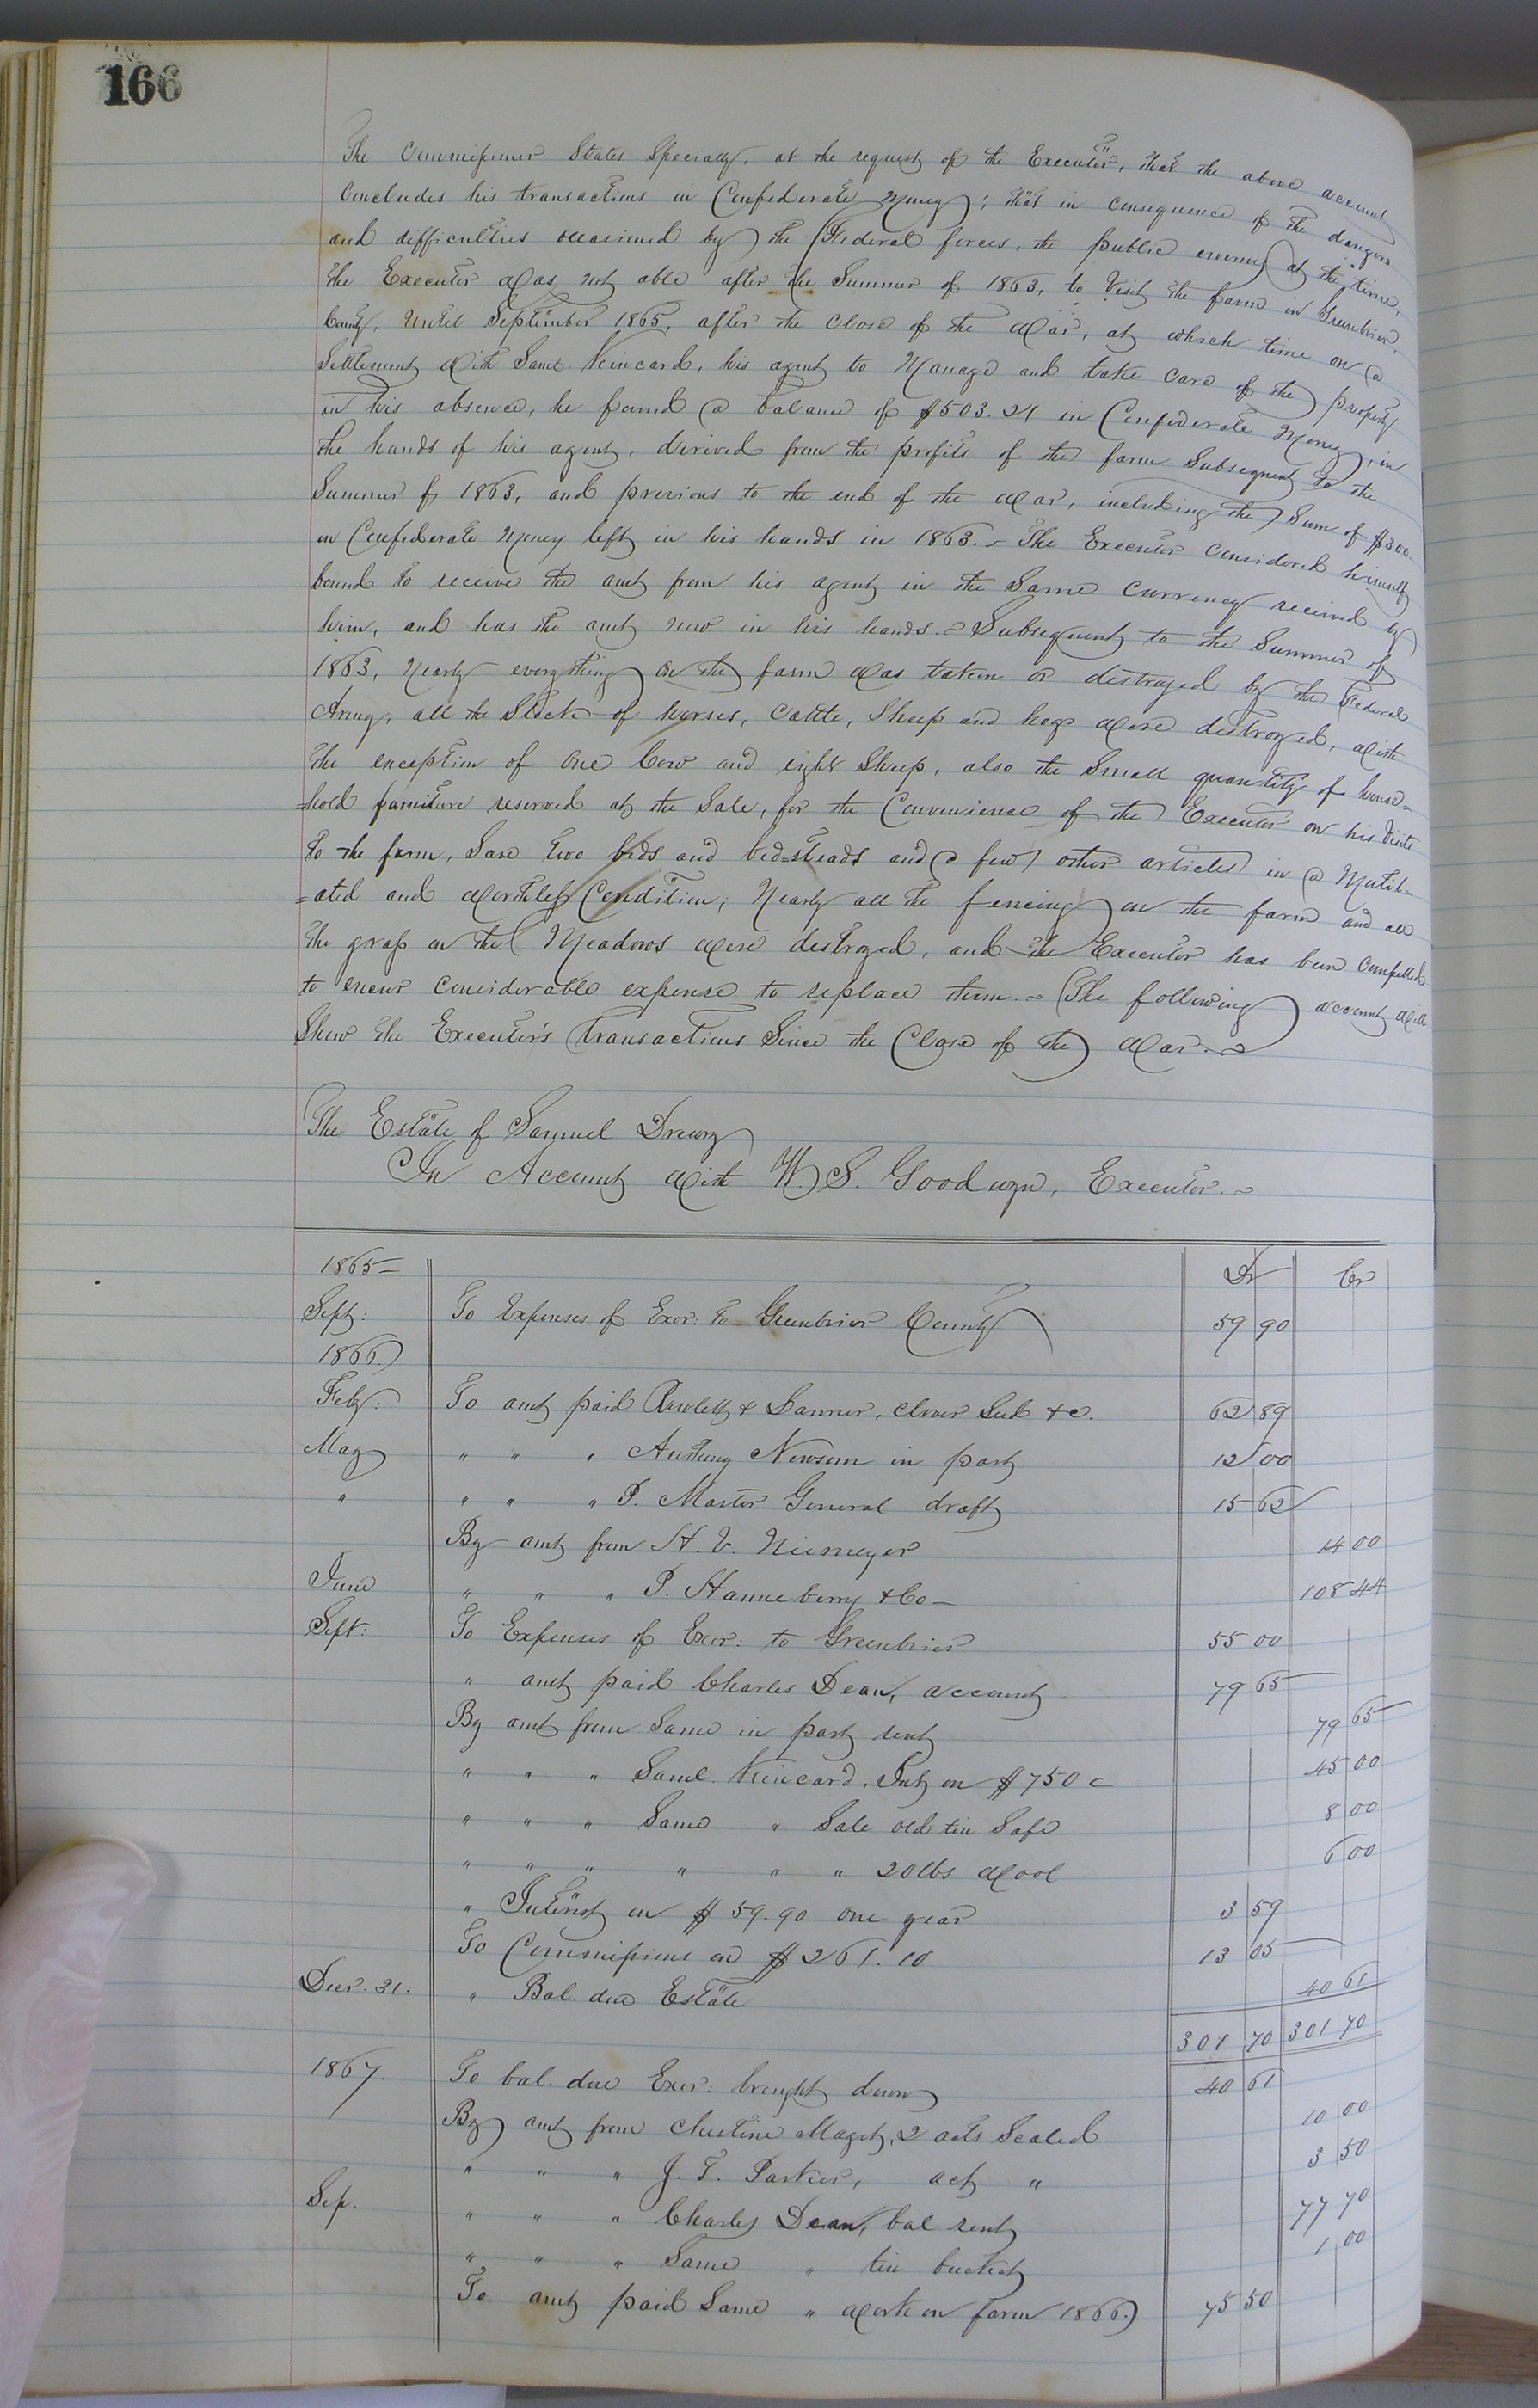 166
The Commissioner States Specially, at the request of the Executor, that the above account
Concludes his transactions in Confederate Money; that in consequence of the dangers
and difficulties occasioned by the Federal forces, the public enemy at the time,
the Executor was not able after the Summer of 1863, to Visit the farm in Greenbrier,
County, Until September 1865, after the Close of the War, at which time on a
Settlement with Saml. Kincard, his agent to Manage and take care of the property
in his absence, he found a balance of $503.21 in Confederate Money, in
the hands of his agent, derived from the profits of the farm Subsequent to the
Summer of 1863, and previous to the end of the War, including the Sum of $300
in Confederate Money left in his hands in 1863. - The Executor Considered himself
bound to receive the amt from his agent in the Same Currency received by
him, and has the amt now in his hands. - Subsequent to the Summer of
1863, Nearly everything on the farm was taken or destroyed by the Federal
Army, all the Stock of horses, Cattle, Sheep and hogs were destroyed, with
the exception of One Cow and eight Sheep, also the Small quantity of house=
=hold furniture reserved at the Sale, for the Convenience of the Executor on his Visits
to the farm, Save two beds and bed=steads and a few other articles in a Mutil=
=ated and worthless Condition; Nearly all the fencing on the farm and all
the grass on the Meadows were destroyed, and the Executor has been Compelled
to incur Considerable expense to replace them. - The following account will
Show the Executor's transactions Since the Close of the War. -
The Estate of Samuel Drewry
In Account with W. S. Goodwyn, Executor. -
1865 - Dr Cr
Sept: To Expenses of Exor: to Greenbrier County 59 90
1866.
Feby: To amt paid Rowlett & Tanner, Clover Seed &c. 62 89
May " " " Anthony Newsum in part 12 00
" " " " P. Master General draft 15 62
By amt from H. V. Niemeyer 14 00
June " " " P. Hanneberry & Co - 108 44
Sept: To Expenses of Exor: to Greenbrier 55 00
" amt paid Charles Dean, account 79 65
By amt from Same in part rent 79 65
" " " Saml. Kincard, Int on $750 c 45 00
" " " Same " Sale old tin Safe 8 00
" " " " " " 20 lbs Wool 6 00
" Interest on $59.90 one year 3 59
To Commissions on $261.10 13 05
Decr. 31: " Bal. due Estate 40 61
301 70 301 70
1867. To bal. due Exor: brought down 40 61
By amt from Christine Maget, 2 acts Scaled 10 00
" " " J. T. Parker, act " 3 50
Sep. " " " Charles Dean, bal rent 77 70
" " " Same " tin bucket 1 00
To amt paid Same " work on farm 1866. 75 50